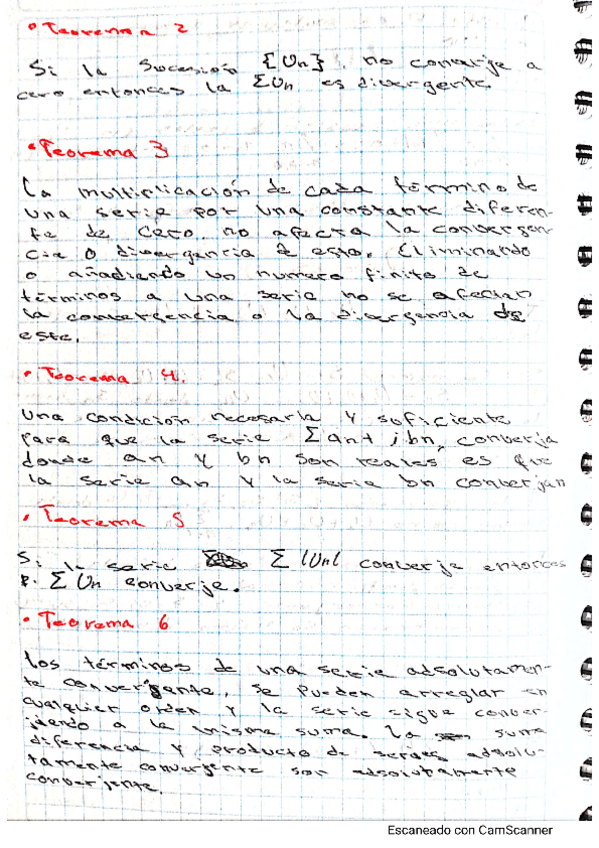 • Teorema 2
Si la sucesión {Un}. no converje a
cero entonces la ΣUn es divergente.
• Teorema 3
La multiplicación de cada término de
una serie por una constante diferen-
te de cero, no afecta la convergen
cia o divergencia de esto. Eliminando
o añadiendo un numero finito de
términos a una serie no se afectan
la convergencia o la divergencia de
este.
• Teorema 4.
Una condición necesaria y suficiente
para que la serie Σ an + jbn, converja
donde an y bn son reales es que
la serie an y la serie bn converjan
• Teorema 5
Si la serie Σ |Un| converje entonces
Σ Un converje.
• Teorema 6
Los términos de una serie absolutamen-
te convergente, se pueden arreglar en
cualquier orden y la serie sigue conver-
jiendo a la misma suma. La suma
diferencia y producto de series absolu-
tamente convergente son absolutamente
converjente.
Escaneado con CamScanner